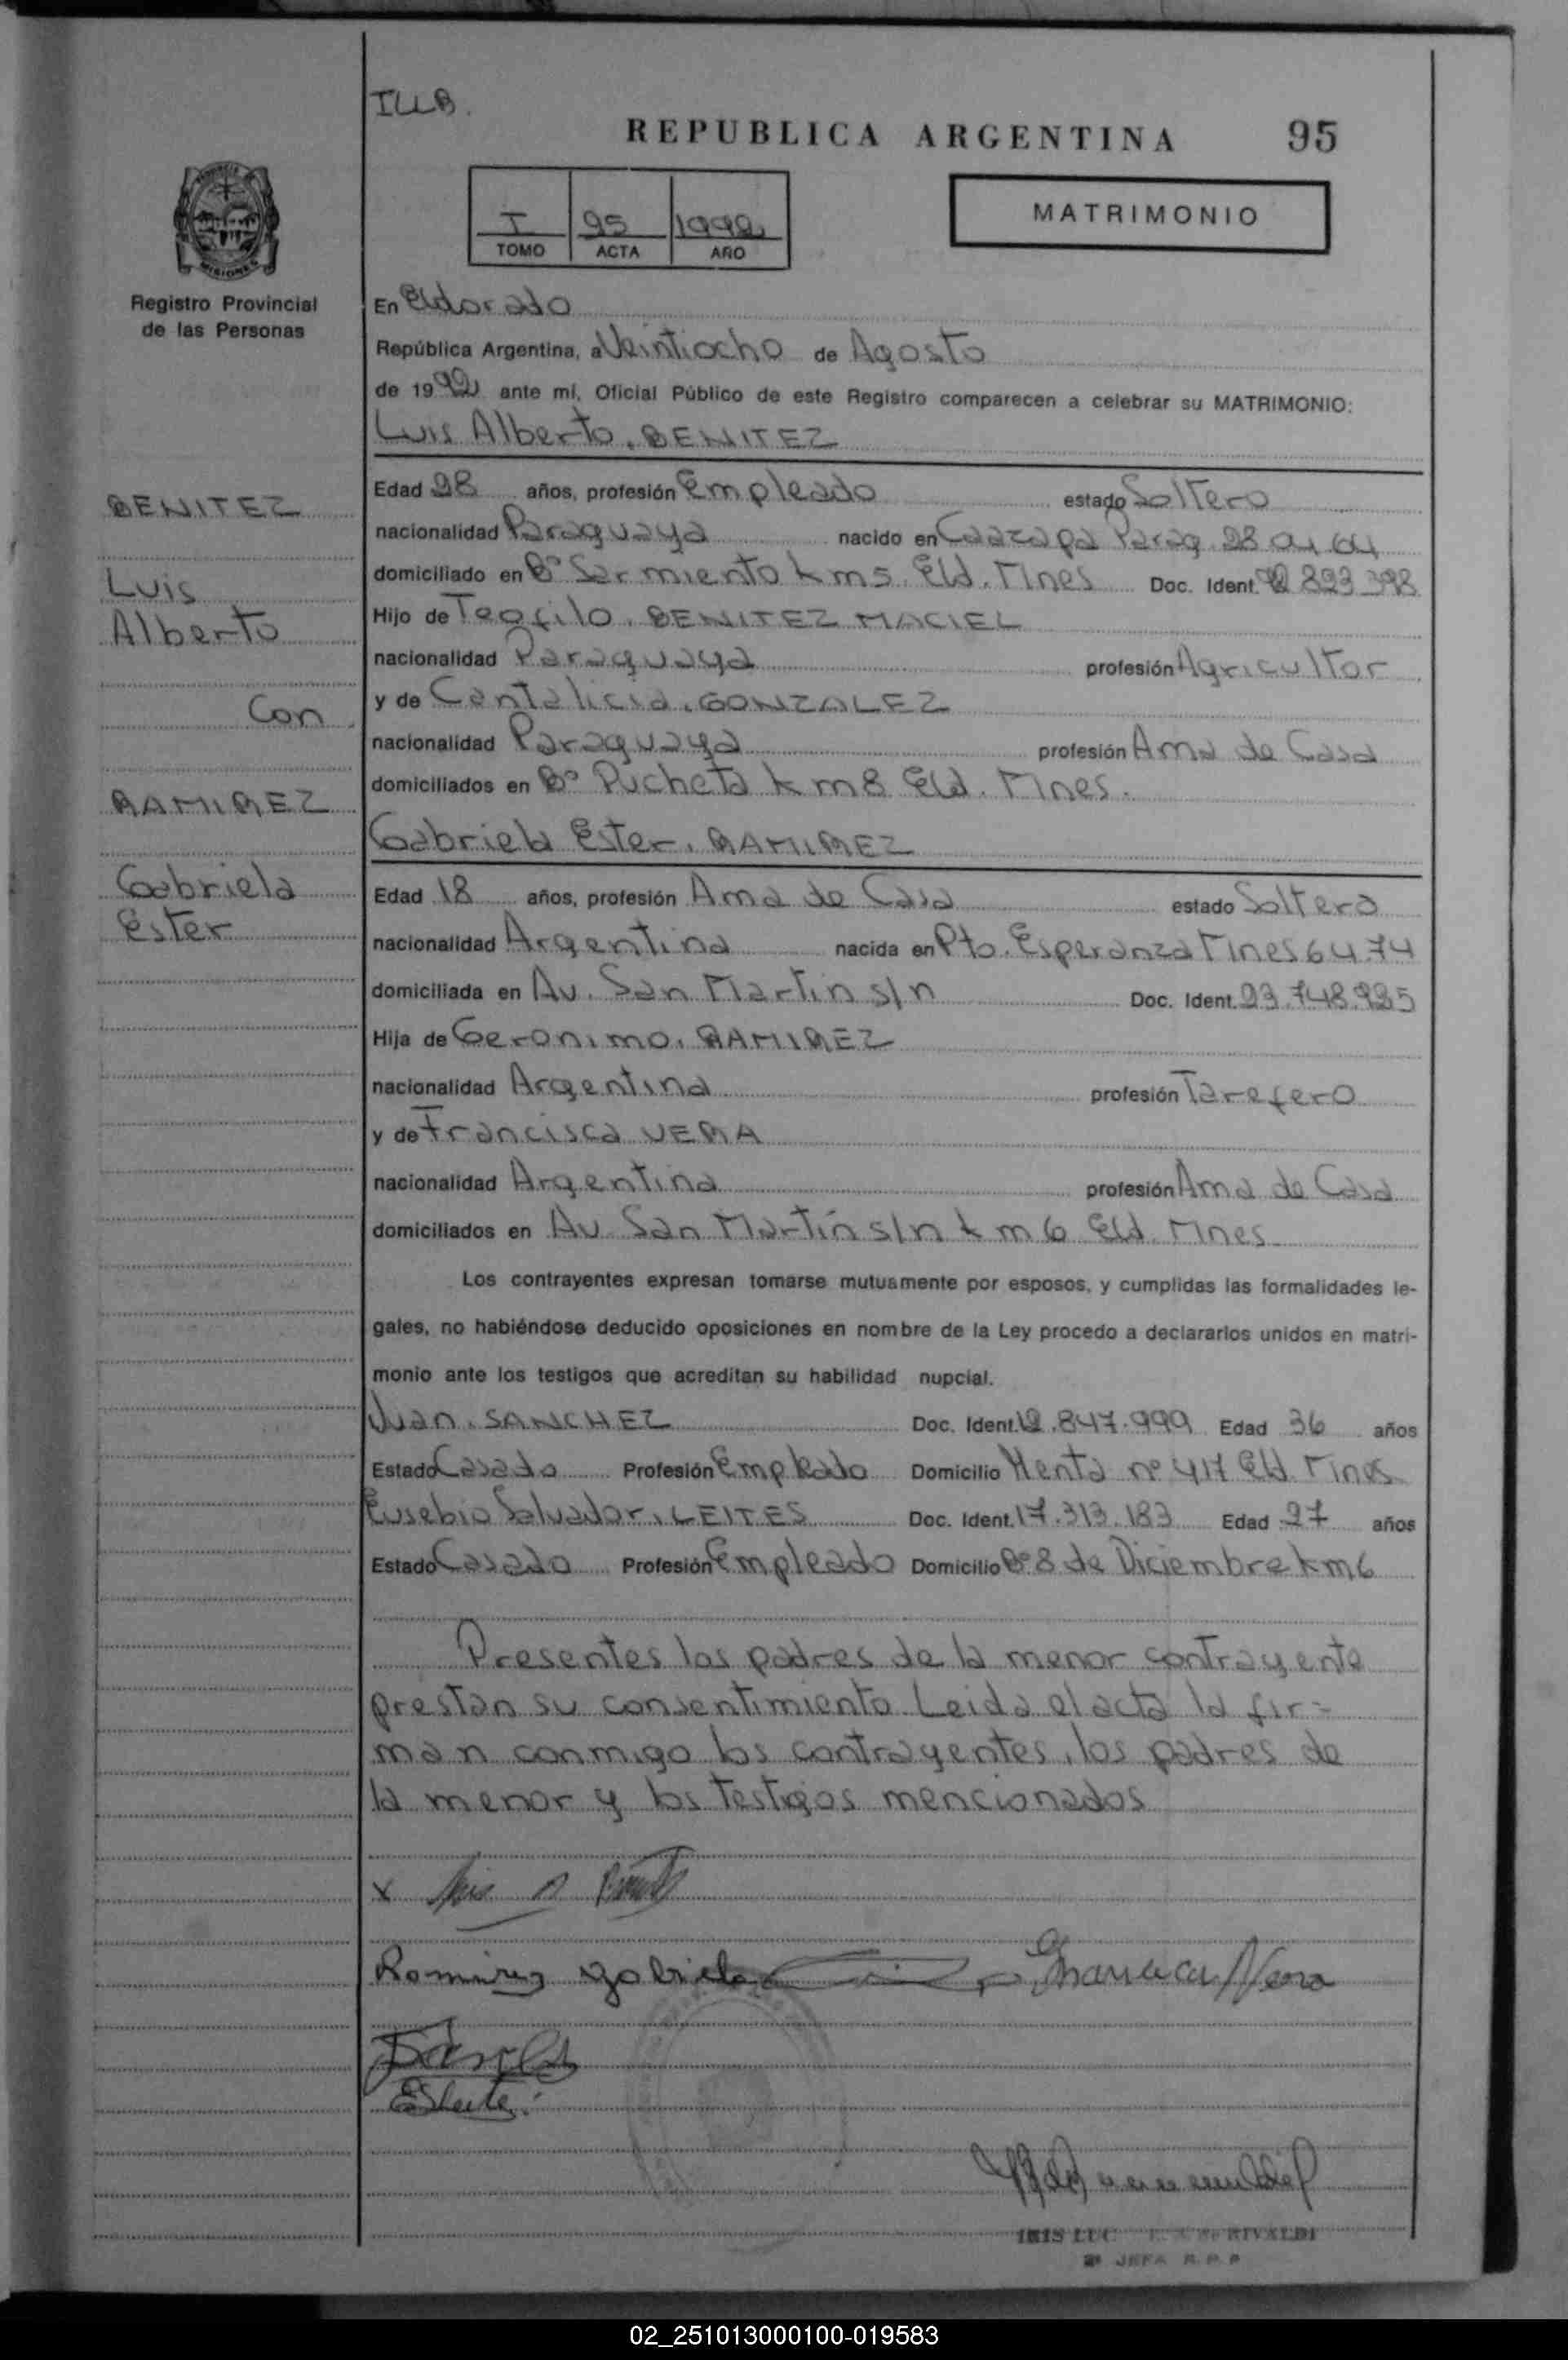 ILLB.
REPUBLICA ARGENTINA 95
I 95 1992
TOMO ACTA AÑO
MATRIMONIO
MISIONES
Registro Provincial
de las Personas
En Eldorado
República Argentina, a Veintiocho de Agosto
de 1992 ante mí, Oficial Público de este Registro comparecen a celebrar su MATRIMONIO:
Luis Alberto. BENITEZ
BENITEZ
Luis
Alberto
Con
RAMIREZ
Gabriela
Ester
Edad 28 años, profesión Empleado estado Soltero
nacionalidad Paraguaya nacido en Caazapa Parag. 28 04 64
domiciliado en B° Sarmiento km 5. Eld. Mnes Doc. Ident. 92 893 398
Hijo de Teofilo. BENITEZ MACIEL
nacionalidad Paraguaya profesión Agricultor
y de Cantalicia. GONZALEZ
nacionalidad Paraguaya profesión Ama de Casa
domiciliados en B° Pucheta km 8 Eld. Mnes.
Gabriela Ester. RAMIREZ
Edad 18 años, profesión Ama de Casa estado Soltera
nacionalidad Argentina nacida en Pto. Esperanza Mnes 6 4 74
domiciliada en Av. San Martín s/n Doc. Ident. 23.748.925
Hija de Geronimo. RAMIREZ
nacionalidad Argentina profesión Tarefero
y de Francisca VERA
nacionalidad Argentina profesión Ama de Casa
domiciliados en Av. San Martín s/n km 6 Eld. Mnes
Los contrayentes expresan tomarse mutuamente por esposos, y cumplidas las formalidades le-
gales, no habiéndose deducido oposiciones en nombre de la Ley procedo a declararlos unidos en matri-
monio ante los testigos que acreditan su habilidad nupcial.
Juan. SANCHEZ Doc. Ident. 12.847.999 Edad 36 años
Estado Casado Profesión Empleado Domicilio Menta n° 417 Eld. Mnes
Eusebio Salvador. LEITES Doc. Ident. 17.313.183 Edad 27 años
Estado Casado Profesión Empleado Domicilio B° 8 de Diciembre km 6
Presentes los padres de la menor contrayente
prestan su consentimiento. Leida el acta la fir=
man conmigo los contrayentes, los padres de
la menor y los testigos mencionados
x Luis A
Ramirez Gabriela Francisca Vera
IRIS LUC RIVALDI
JEFA R.P.P
02_251013000100-019583